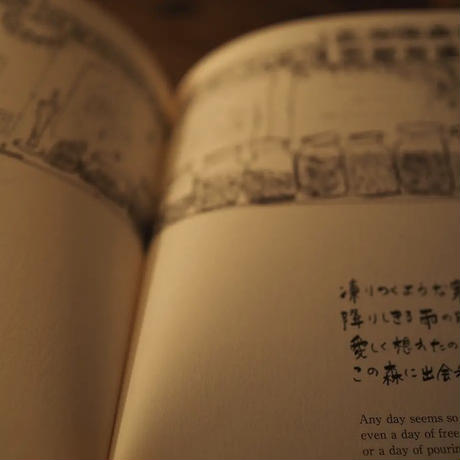 凍りつくような寒
降りしきる雨の日
愛しく想えたの
この森に出会え
Any day seems so
even a day of free
or a day of pourin